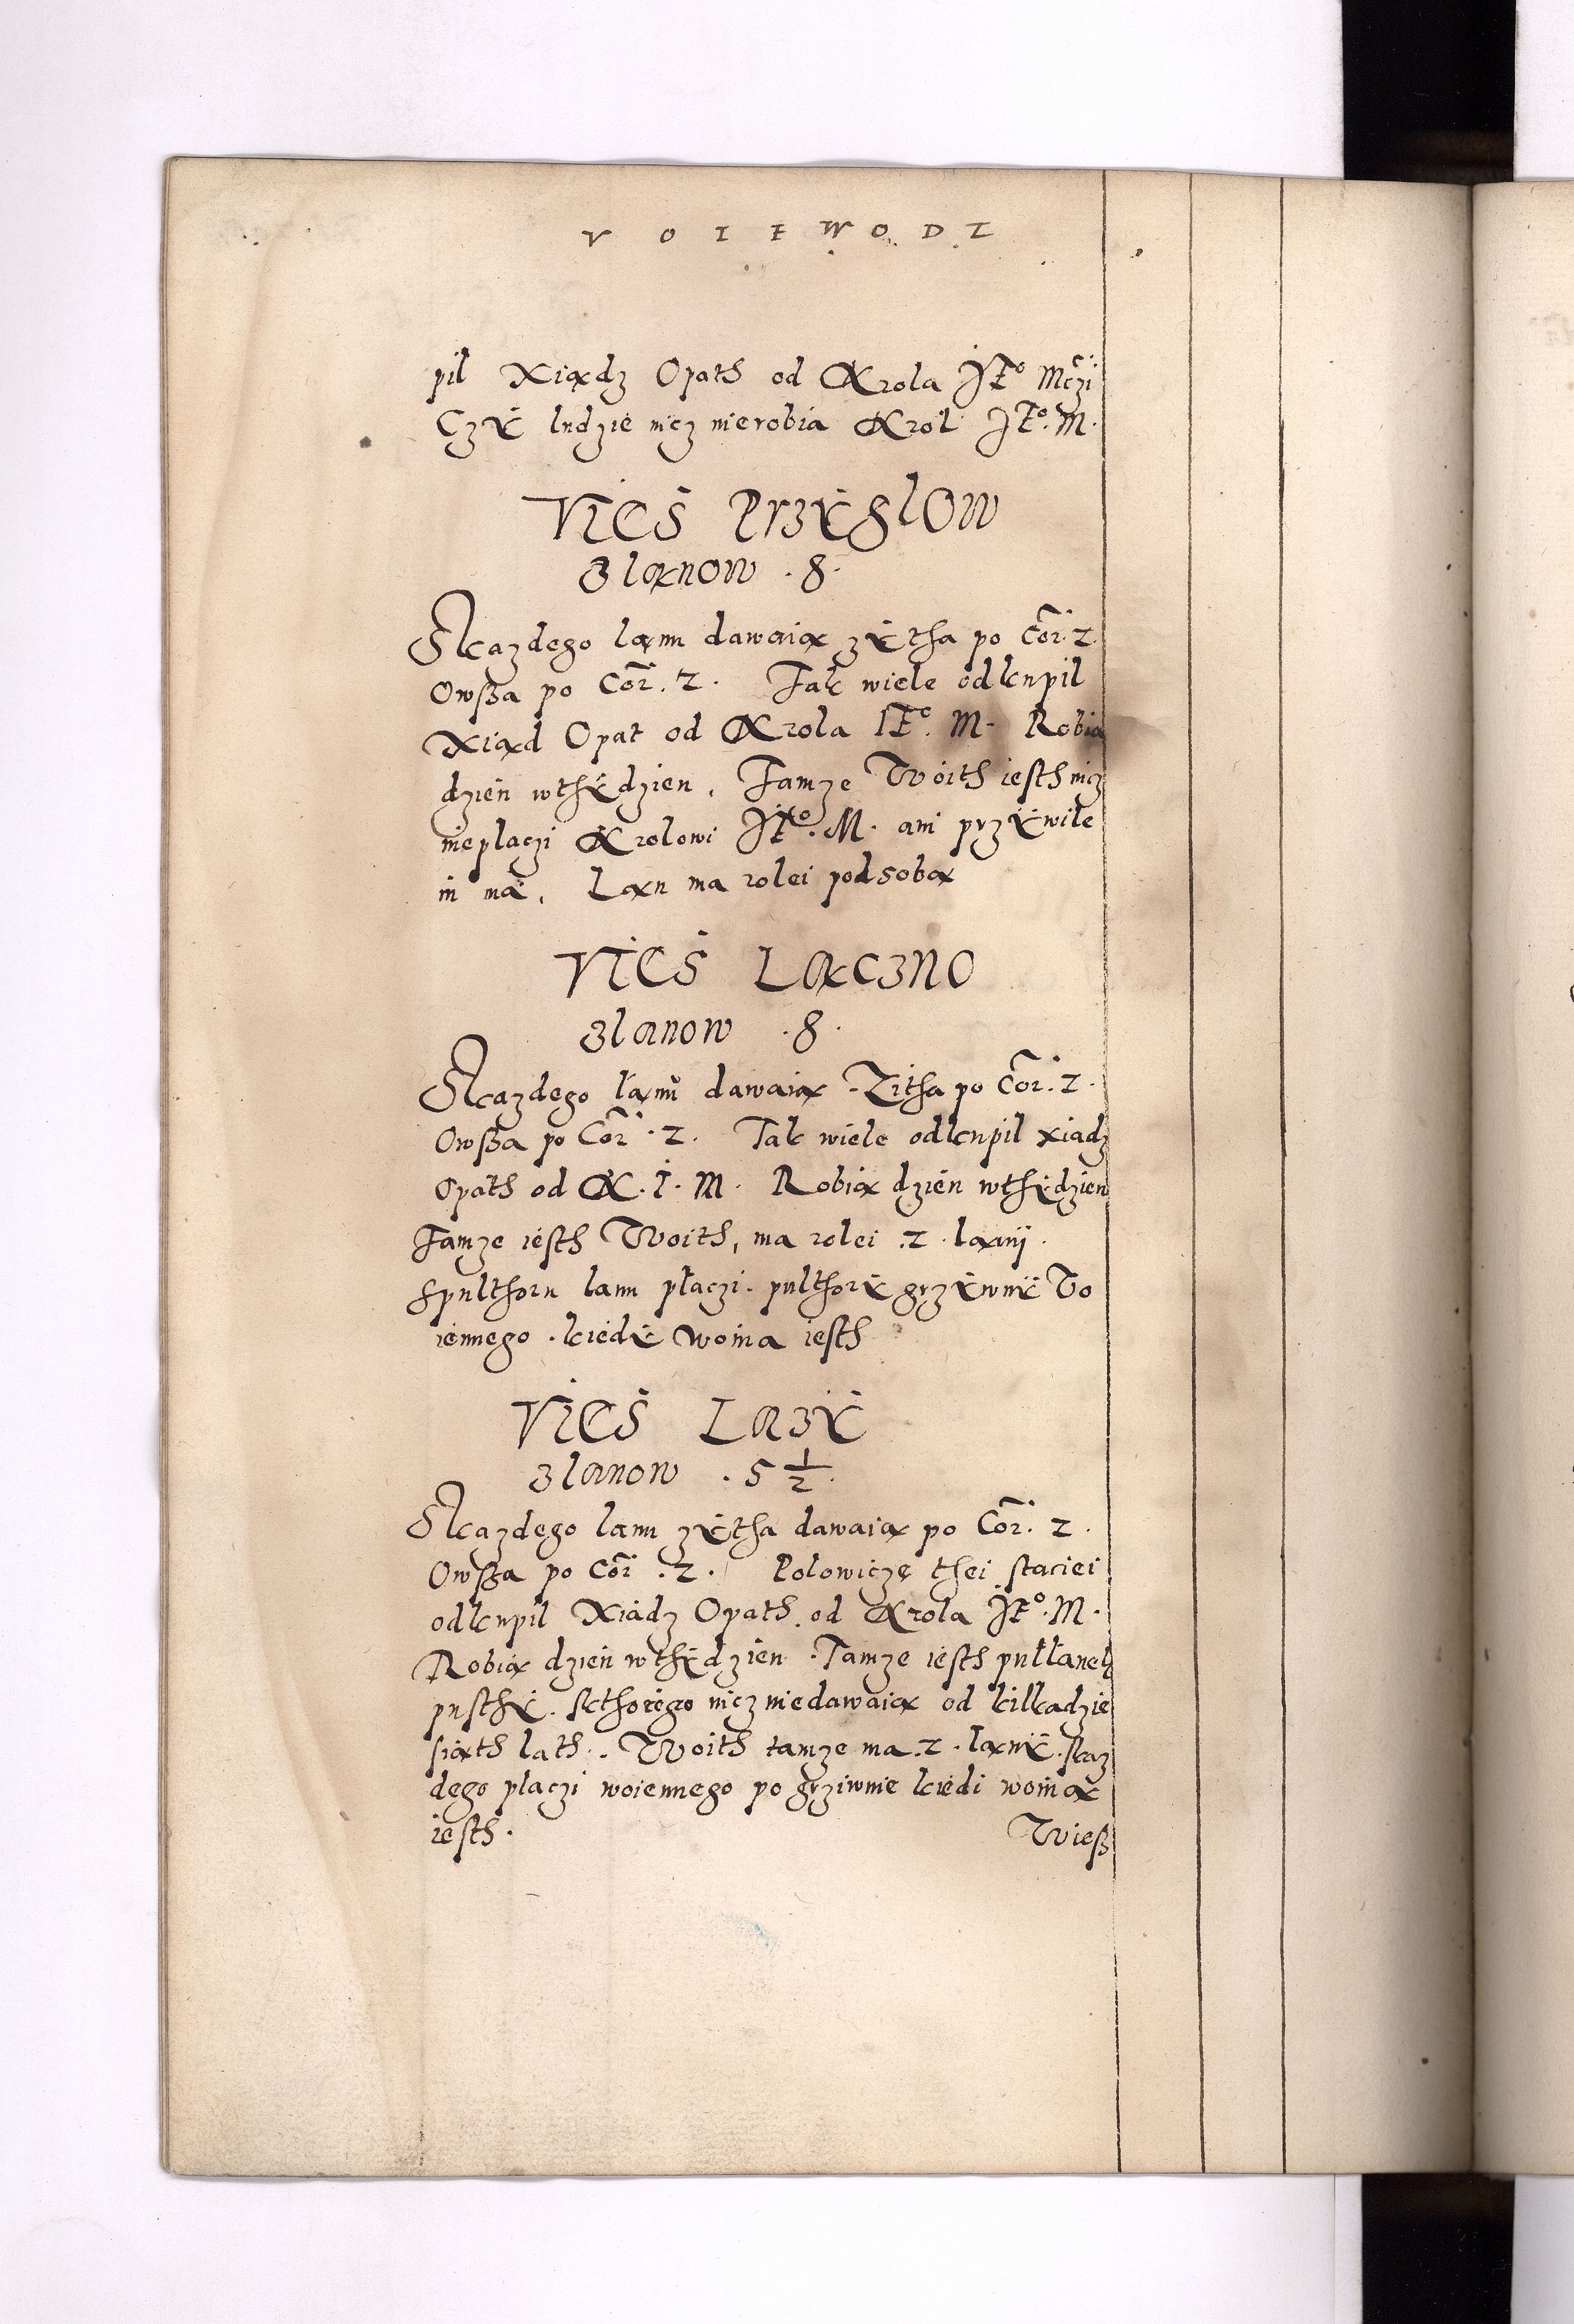 VOIEWODZ
pil Xiądz Opath od Krola JEº Mczi
Czÿ ludzie nicz nierobia Krol JEº. M.
VIES PrzÿslOW
zlanow . 8 .
Skazdego lanu dawaią zÿtha po Cor. 2.
Owsza po Cor. 2. Tak wiele odkupil
Xiąd Opat od Krola IEº. M. Robia
dzień wthÿdzien, Tamze Woith iesth nicz
nieplaczi Krolowi JEº. M. ani przÿwile
iu ma, Lan ma rolei podsobą
VIES LaczNO
zlanow . 8 .
Skazdego łanu dawaią Zitha po Cor. 2.
Owsza po Cor . 2. Tak wiele odkupil xiadz
Opath od K. I. M. Robią dzień wthÿdzien
Tamze iesth Woith, ma rolei .2. lanij.
Spulthoru lanu płaczi pulthorÿ grzÿwnÿ Wo
iennego . kiedÿ woina iesth
VIES Lazÿ
zlanow . 5 1/2 .
Skazdego lanu zÿtha dawaią po Cor. 2.
Owsza po Cor .2. Polowiczę thei staciei
odkupil Xiadz Opath od Krola JEº. M.
Robią dzień wthÿdzien . Tamze iesth pułłanek
pusthÿ. Skthorego nicz niedawaią od kilkadzie
siąth lath. Woith tamze ma .2. lanÿ. skaz
dego placzi woiennego po grziwnie kiedi woina
iesth.
Wiesz